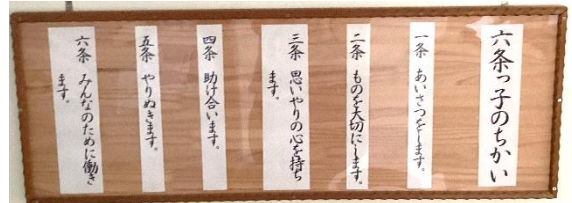 六条っ子のちかい
一条 あいさつをします。
二条 ものを大切にします。
三条 思いやりの心を持ち
ます。
四条 助け合います。
五条 やりぬきます。
六条 みんなのために働き
ます。